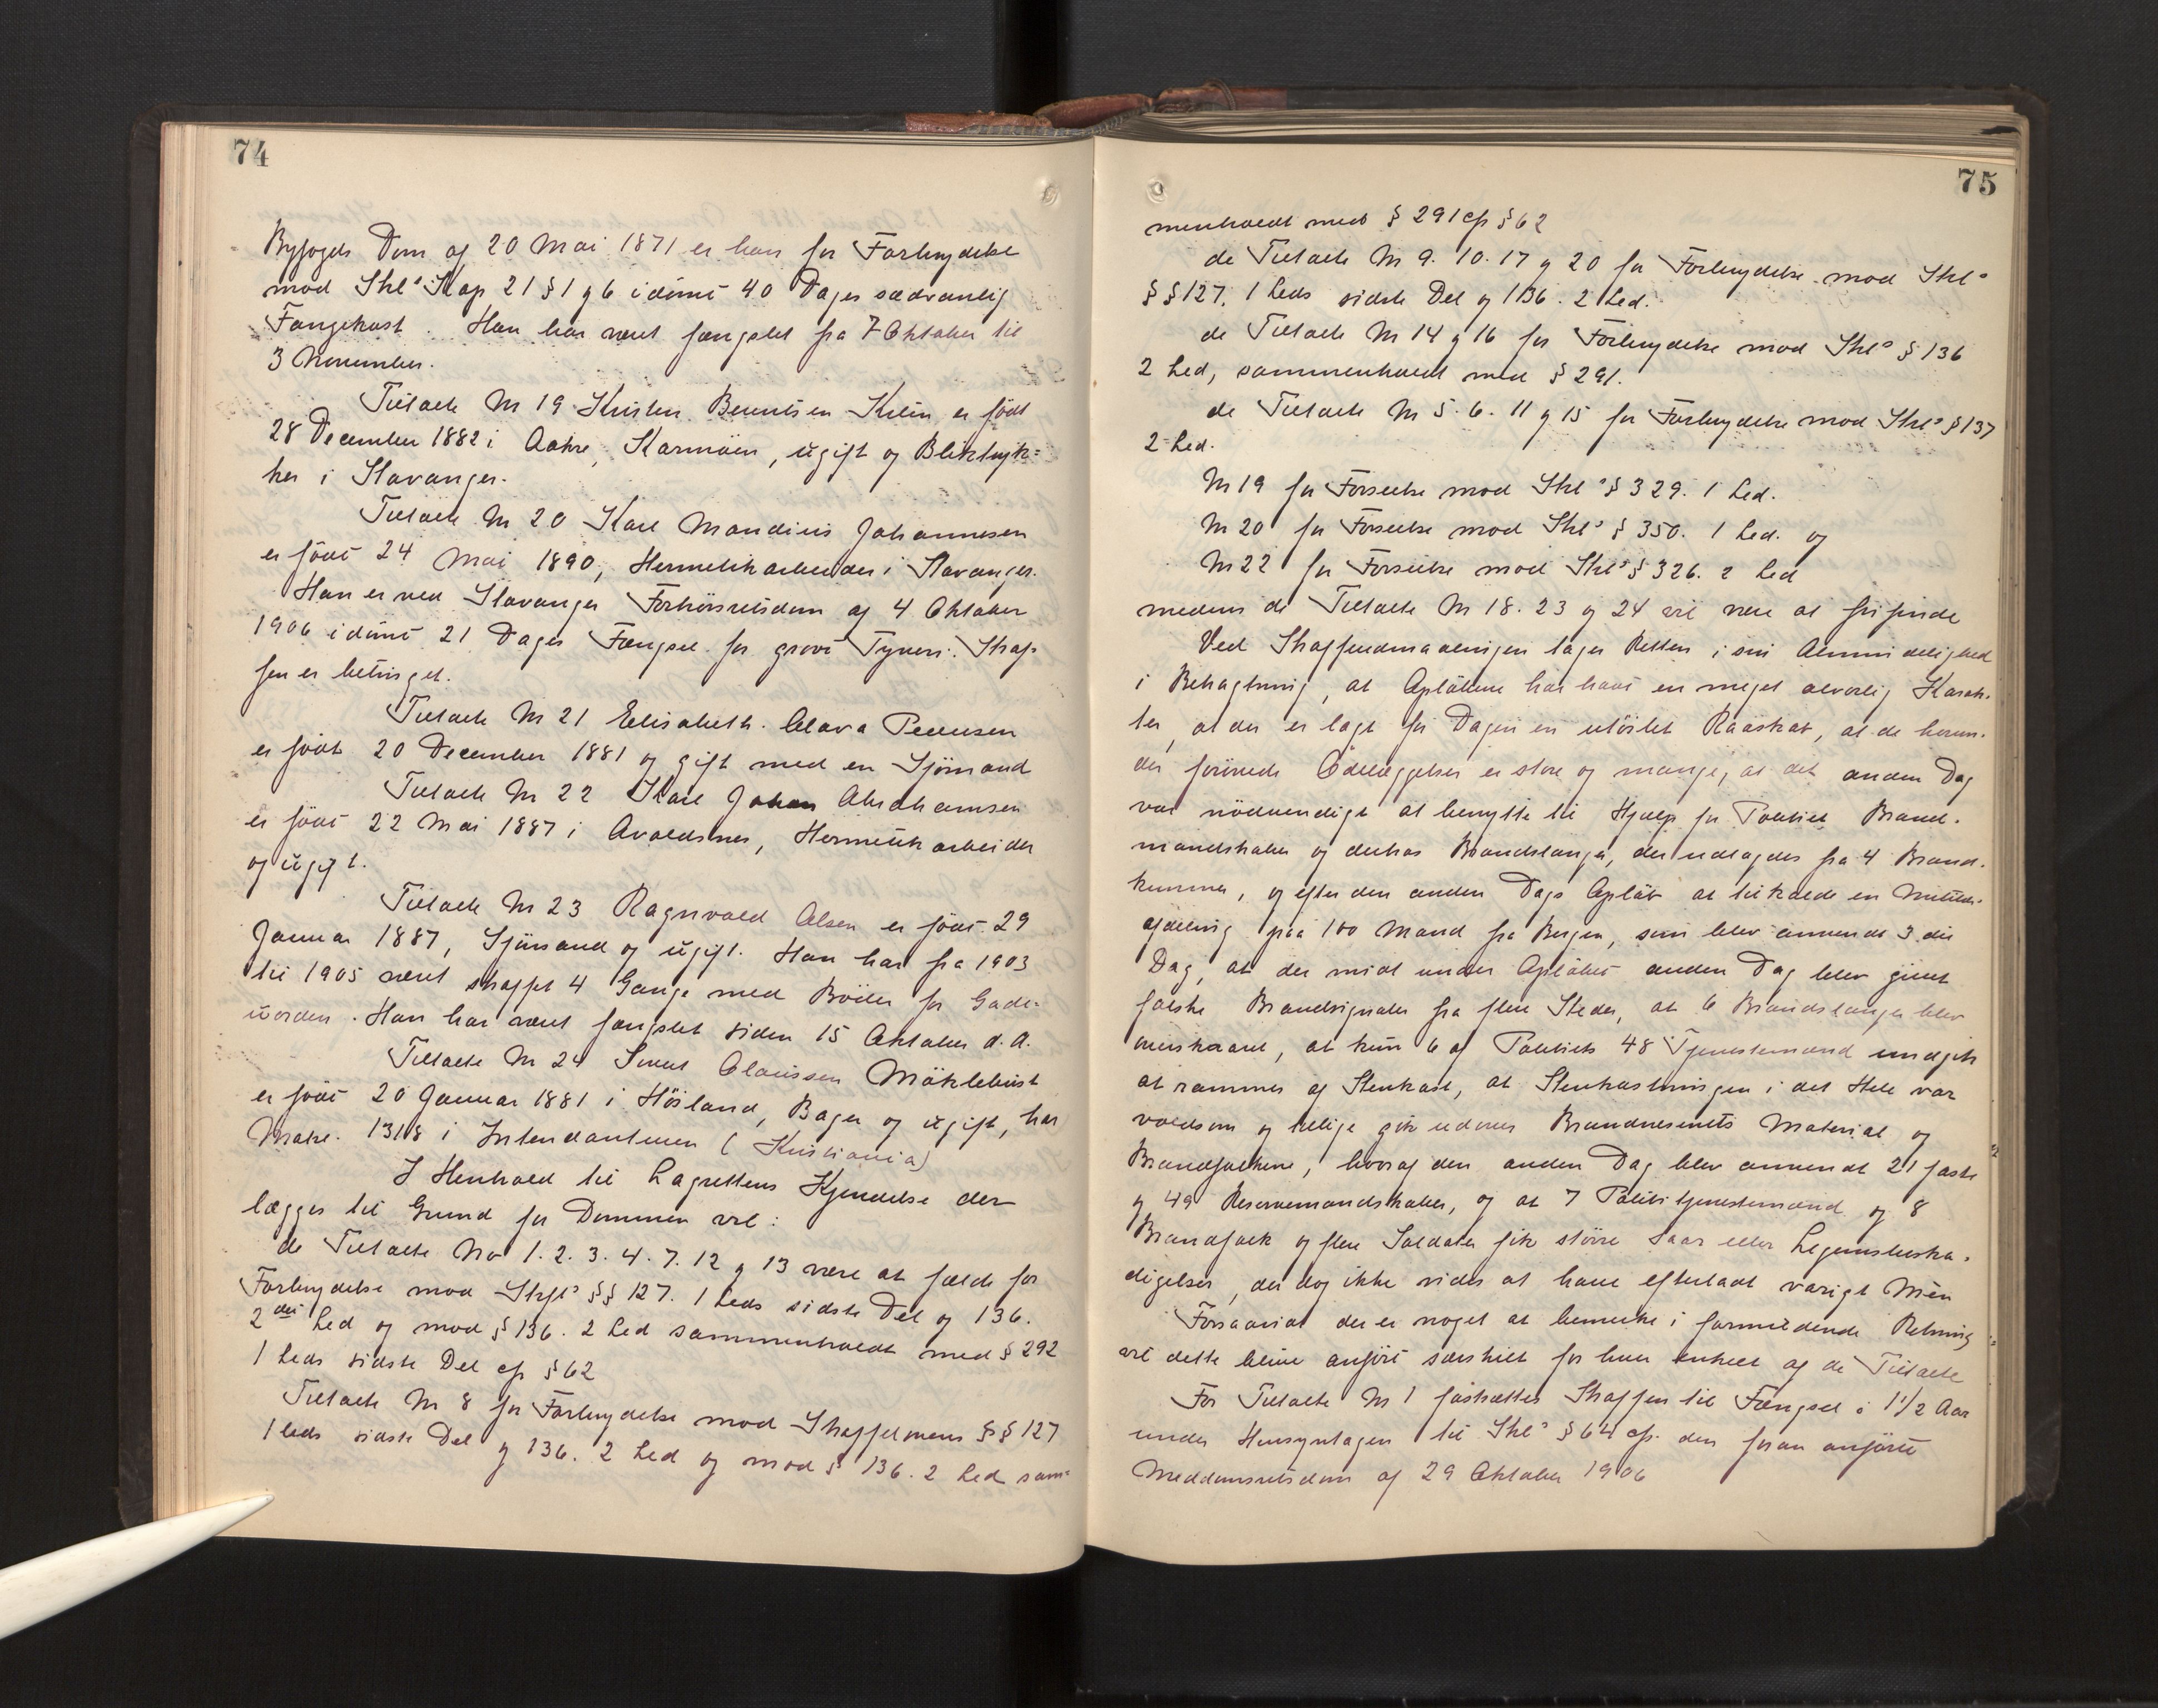 74
Byfogds Dom af 20 Mai 1871 er han for Forbrydelse
mod Strl's Kap 21 § 1 og 6 idømt 40 Dages sædvanlig
Fangekost. Han har været fængslet fra 7 Oktober til
3 November.
Tiltalte Nr 19 Kristen Berentsen is født
28 December 1882 i Aakre, Karmöen, ugift og Bliktryk=
ker i Stavanger.
Tiltalte Nr 20 Karl Mandius Johannesen
er födt 24 Mai 1890, Hermetikarbeider i Stavanger.
Han er ved Stavanger Forhörsretsdom af 4 Oktober
1906 idömt 21 Dages Fængsel for grovt Tyveri. Straf
fen er betinget.
Tiltalte Nr 21 Elisabeth Clara Pedersen
er födt 20 December 1881 og gift med en Sjömand
Tiltalte Nr 22 Karl Johan Abrahamsen
er födt 22 Mai 1887 i Avaldsnes, Hermetikarbeider
og ugift.
Tiltalte Nr 23 Ragnvald Olsen er födt 29
Januar 1887, Sjömand og ugift. Han har fra 1903
til 1905 været straffet 4 Gange med Böder for Gade=
uorden. Han har været fængslet siden 15 Oktober d. A.
Tiltalte Nr 24 Clausen Möklebust
er födt 20 Januar 1881 i Höiland, Bager og ugift, har
Matr. 1318 i Intendanturen (Kristiania)
I Henhold til Lagrettens Kjendelse der
lægges til Grund for Dommen vil:
de Tiltalte No 1. 2. 3. 4. 7. 12 og 13 være at fælde for
Forbrydelse mod Strfl's §§ 127. 1 Leds sidste Del og 136.
2det Led og mod § 136. 2 Led sammenholdt med § 292
1 Leds sidste Del cfr § 62
Tiltalte Nr 8 for Forbrydelse mod Straffelovens §§ 127
1 Leds sidste Del og 136. 2 Led og mod § 136. 2 Led sam=
75
menholdt med § 291 cfr § 62
de Tiltalte Nr 9. 10. 17 og 20 for Forbrydelse mod Strl's
§§ 127. 1 Leds sidste Del og 136. 2 Led.
de Tiltalte Nr 14 og 16 for Forbrydelse mod Strl's § 136
2 Led, sammenholdt med § 291.
de Tiltalte Nr 5. 6. 11 og 15 for Forbrydelse mod Strl's § 137
2 Led.
Nr 19 for Forseelse mod Strl's § 329. 1 Led.
Nr 20 for Forseelse mod Strl's § 350. 1 Led. og
Nr 22 for Forseelse mod Strl's § 326. 2 Led
medens de Tiltalte Nr 18. 23 og 24 vil være at frifinde
Ved Straffeudmaalingen tager Retten i sin Almindelighed
i Betragtning, at Oplöbene har havt en meget alvorlig Karak-
ter, at der er lagt for Dagen en utöilet Raaskab, at de herun-
der forövede Ödelæggelser er store og mange, at det anden Dag
var nödvendigt at benytte til Hjælp for Politiet Brand-
mandskaber og derhos Brandslanger, der udlagdes fra 4 Brand-
kummer, og efter den anden Dags Oplöb at tilkalde en Militær-
afdeling paa 100 Mand fra Bergen, som blev anvendt 3die
Dag, at der midt under Oplöbet anden Dag blev givet
falske Brandsignaler fra flere Steder, at 6 Brandslanger blev
overskaaret, at kun 6 af Politiets 48 Tjenestemænd undgik
at rammes af Stenkast, at Stenkastningen i det Hele var
voldsom og tillige gik udover Brandvæsenets Material og
Brandfolkene, hvoraf den anden Dag blev anvendt 21 faste
og 49 Reservemandskaber, og at 7 Polititjenestemænd og 8
Brandfolk og flere Soldater fik större Saar eller Legemsbeska-
digelser, der dog ikke sides at have efterladt varigt Mén
Forsaavidt der er noget at bemerke i formildende Retning
vil dette blive anført særskilt for hver enkelt af de Tiltalte
For Tiltalte Nr 1 fastsættes Straffen til Fængsel i 1 1/2 Aar
under Hensyntagen til Strl's § 64 cfr. den foran anförte
Meddomsretsdom af 29 Oktober 1906